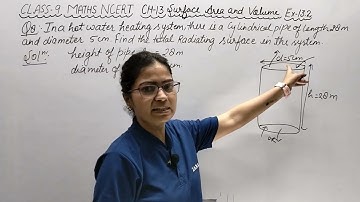 CLASS-9 MATHS NCERT CH-13 Surface Area and Volume Ex-13.2
Q8: In a hot water heating system, there is a Cylindrical pipe of length 28m
and diameter 5cm. Find the total Radiating surface in the system.
Solⁿ: height of pipe = 28m
diameter of
d=5cm
h=28m